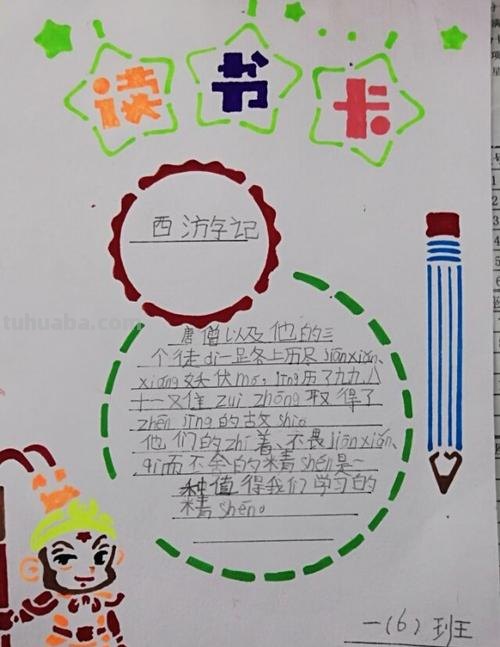 读书卡
西游字记
唐僧以及他的三
个徒di一足各上历尽jiānxiǎn、
xiáng妖伏mó，jīng历了九九八
十一又佳zuì zhōng取得了
zhēn jīng的故shì。
他们的zhí着、不畏jiānxiǎn、
qì而不舍的精shén是一
种值得我们学习的
精shén。
一（6）班
tuhuaba.com